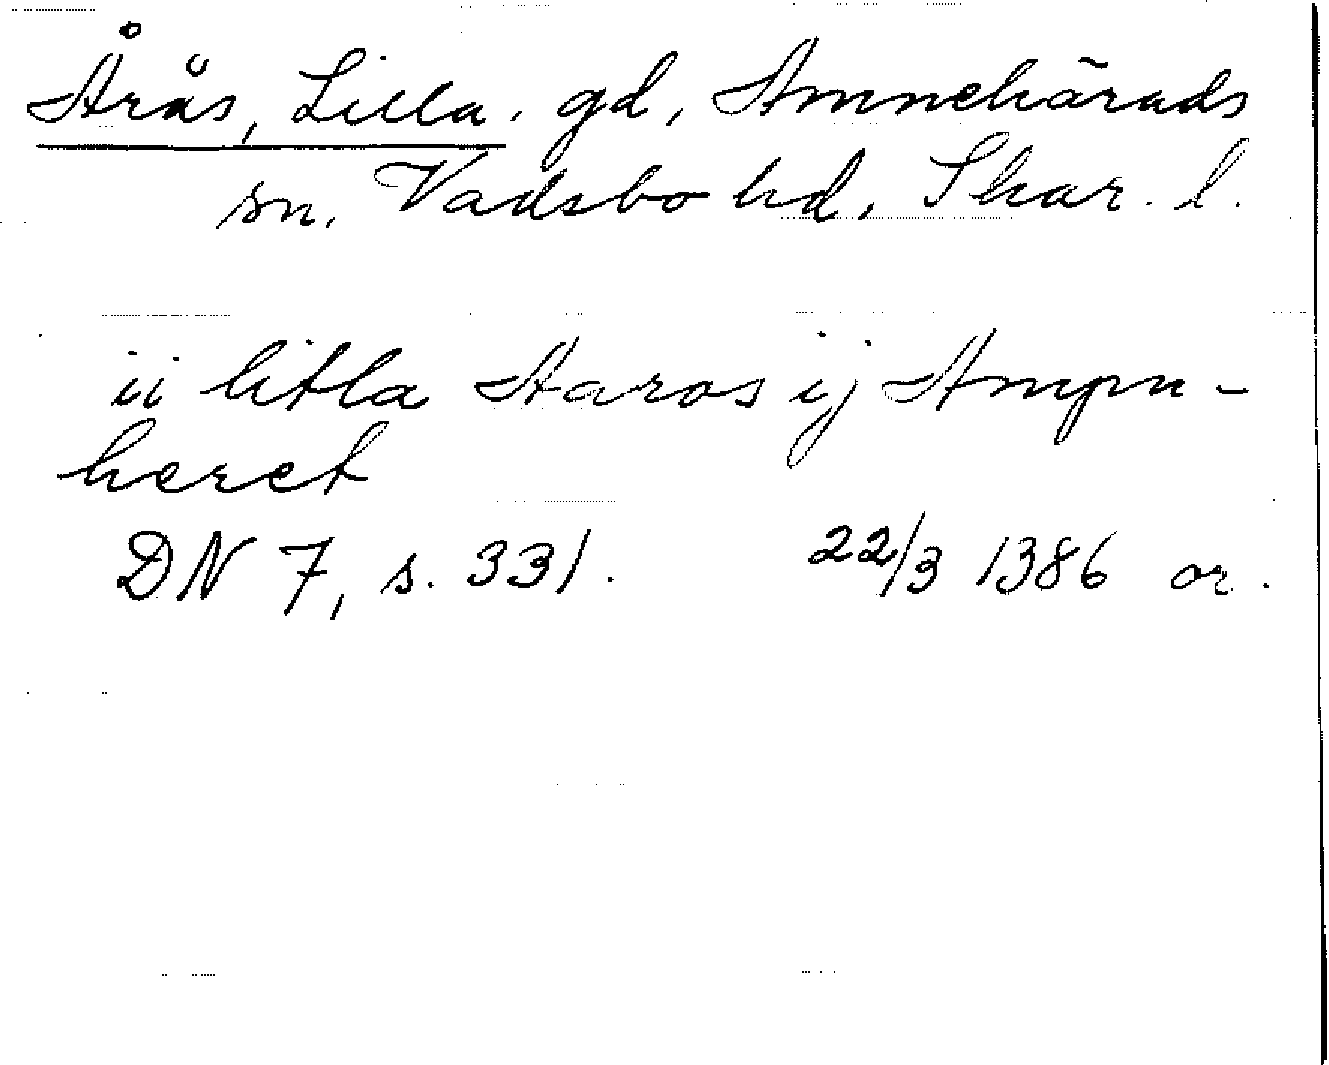 Årås, Lilla. gd, Amnehärads
sn. Vadsbo hd, Skar. l.
ii litla Aaros ij Ampn-
heret
DN 7, s. 331. 22/3 1386 or.